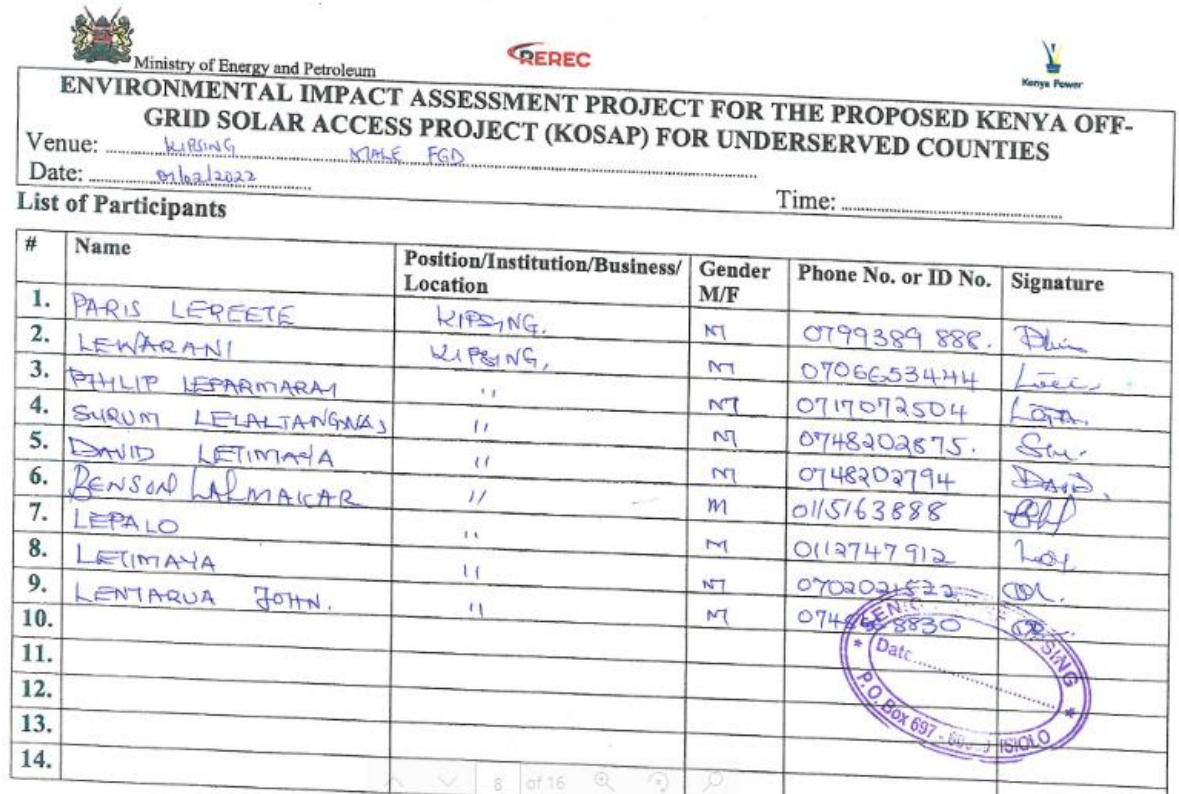 Ministry of Energy and Petroleum
REREC
Kenya Power
ENVIRONMENTAL IMPACT ASSESSMENT PROJECT FOR THE PROPOSED KENYA OFF-
GRID SOLAR ACCESS PROJECT (KOSAP) FOR UNDERSERVED COUNTIES
Venue: KIPSING MALE FGD
Date: 01/02/2022
Time:
List of Participants
# Name Position/Institution/Business/Location Gender M/F Phone No. or ID No. Signature
1. PARIS LEREETE KIPSING. M 0799389 888.
2. LEWARANI KIPSING, M 0706653444
3. PHILIP LEPARMARAI " M 0717072504
4. SURUM " M 0748202875.
5. DAVID LETIMAYA " M 0748202794 DAVID.
6. BENSON LALMAKAR " M 0115163888
7. LEPALO " M 0112747912
8. LETIMAYA " M 0702021522
9. LENTARUA JOHN. " M
10.
11.
12.
13.
14.
Date
P. O. Box 697 - ISIOLO
8 of 16